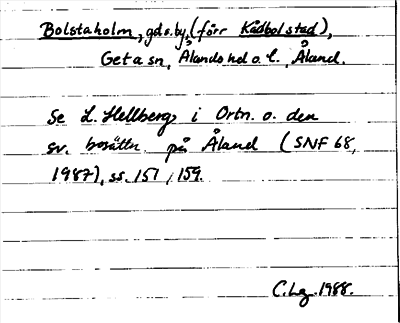 Bolstaholm, gd o. by, (förr Kådbolstad),
Geta sn, Ålands hd o. l., Åland.
Se L. Hellberg i Ortn. o. den
sv. bosättn. på Åland (SNF 68,
1987), ss. 151, 159.
C. Lg. 1988.